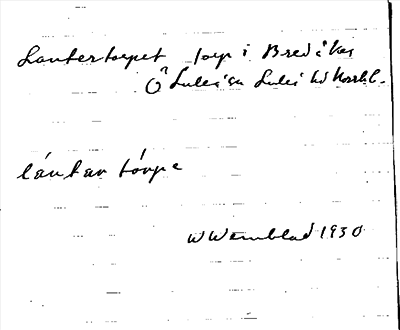 Lantertorpet torp i Bredåker
Ö Luleå sn Luleå hd Norrb.
lántar tórpe
W Wennblad 1930